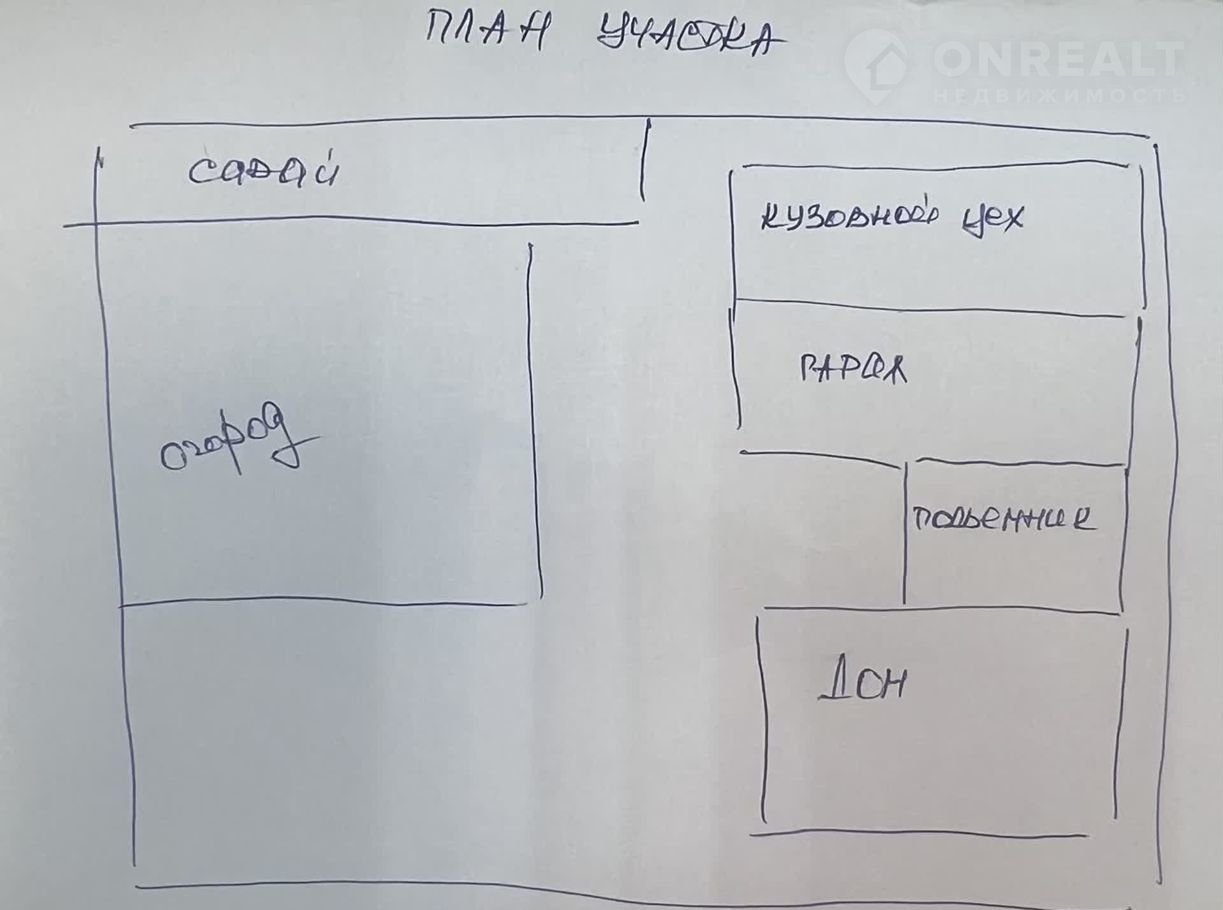 ПЛАН УЧАСТКА
ONREALT
НЕДВИЖИМОСТЬ
сарай
КУЗОВНОЙ цех
ГАРАЖ
огород
ПОДЪЕМНИК
ДОМ